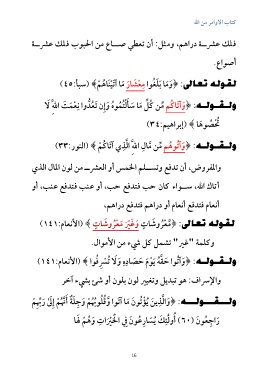 كتاب الأوامر من الله
فلك عشرة دراهم، ومثل: أن تعطي صاع من الحبوب فلك عشرة
أصواع.
لقوله تعالى: ﴿وَمَا بَلَغُوا مِعْشَارَ مَا آتَيْنَاهُمْ﴾ (سبأ:٤٥)
ولقوله: ﴿وَآتَاكُم مِّن كُلِّ مَا سَأَلْتُمُوهُ وَإِن تَعُدُّوا نِعْمَتَ اللَّهِ لَا
تُحْصُوهَا﴾ (إبراهيم:٣٤)
ولقوله: ﴿وَآتُوهُم مِّن مَّالِ اللَّهِ الَّذِي آتَاكُمْ﴾ (النور:٣٣)
والمفروض، أن ندفع ونسلم الخمس أو العشر من لون المال الذي
آتاك الله، سواء كان حب فتدفع حب، أو عنب فتدفع عنب، أو
أنعام فتدفع أنعام أو دراهم فتدفع دراهم،
لقوله تعالى: ﴿مَّعْرُوشَاتٍ وَغَيْرَ مَعْرُوشَاتٍ﴾ (الأنعام:١٤١)
وكلمة "غير" تشمل كل شيء من الأموال.
ولقوله: ﴿وَآتُوا حَقَّهُ يَوْمَ حَصَادِهِ وَلَا تُسْرِفُوا﴾ (الأنعام:١٤١)
والإسراف: هو تبديل وتغيير لون بلون أو شئ بشيء آخر
ولقوله: ﴿وَالَّذِينَ يُؤْتُونَ مَا آتَوا وَّقُلُوبُهُمْ وَجِلَةٌ أَنَّهُمْ إِلَىٰ رَبِّهِمْ
رَاجِعُونَ (٦٠) أُولَٰئِكَ يُسَارِعُونَ فِي الْخَيْرَاتِ وَهُمْ لَهَا
16